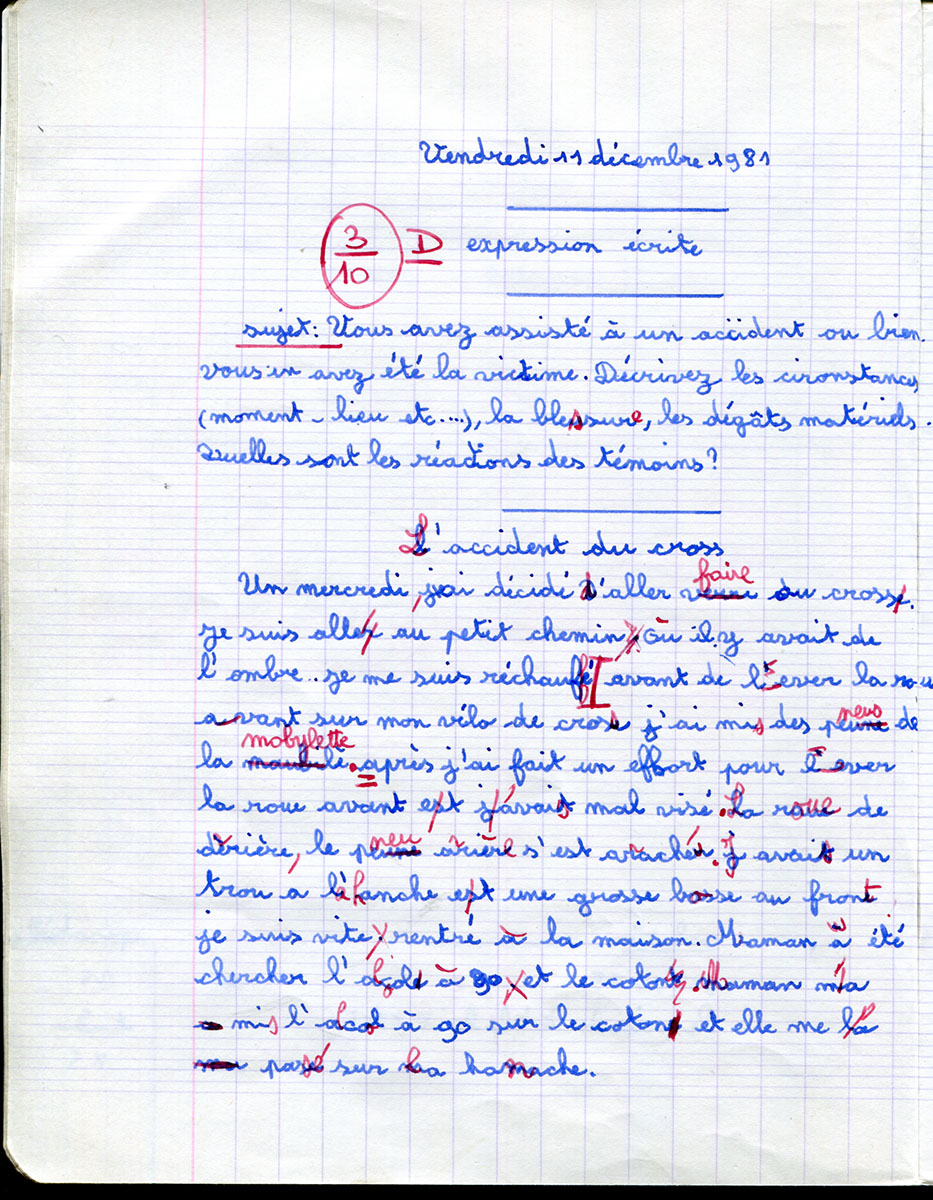 Vendredi 11 décembre 1981
3/10 D expression écrite
sujet: Vous avez assisté à un accident ou bien
vous en avez été la victime. Décrivez les cironstances
(moment - lieu etc....), la blessure, les dégâts matériels.
Quelles sont les réactions des témoins?
L'accident du cross
faire
Un mercredi, j'ai décidé d'aller du cross.
Je suis aller au petit chemin où il y avait de
l'ombre.. Je me suis réchauffé avant de lever la rou
avant sur mon vélo de cross j'ai mis des de
pneus
mobylette
la . après j'ai fait un effort pour lever
la roue avant est j'avais mal visé. La roue de
pneu
dèrière, le arière s'est araché. J'avais un
trou a la hanche est une grosse bosse au front
je suis vite rentré à la maison. Maman a été
chercher l'alcol à 90 et le coton. Maman m'a
mis l'alcol à 90 sur le coton et elle me l'a
passé sur la hanche.